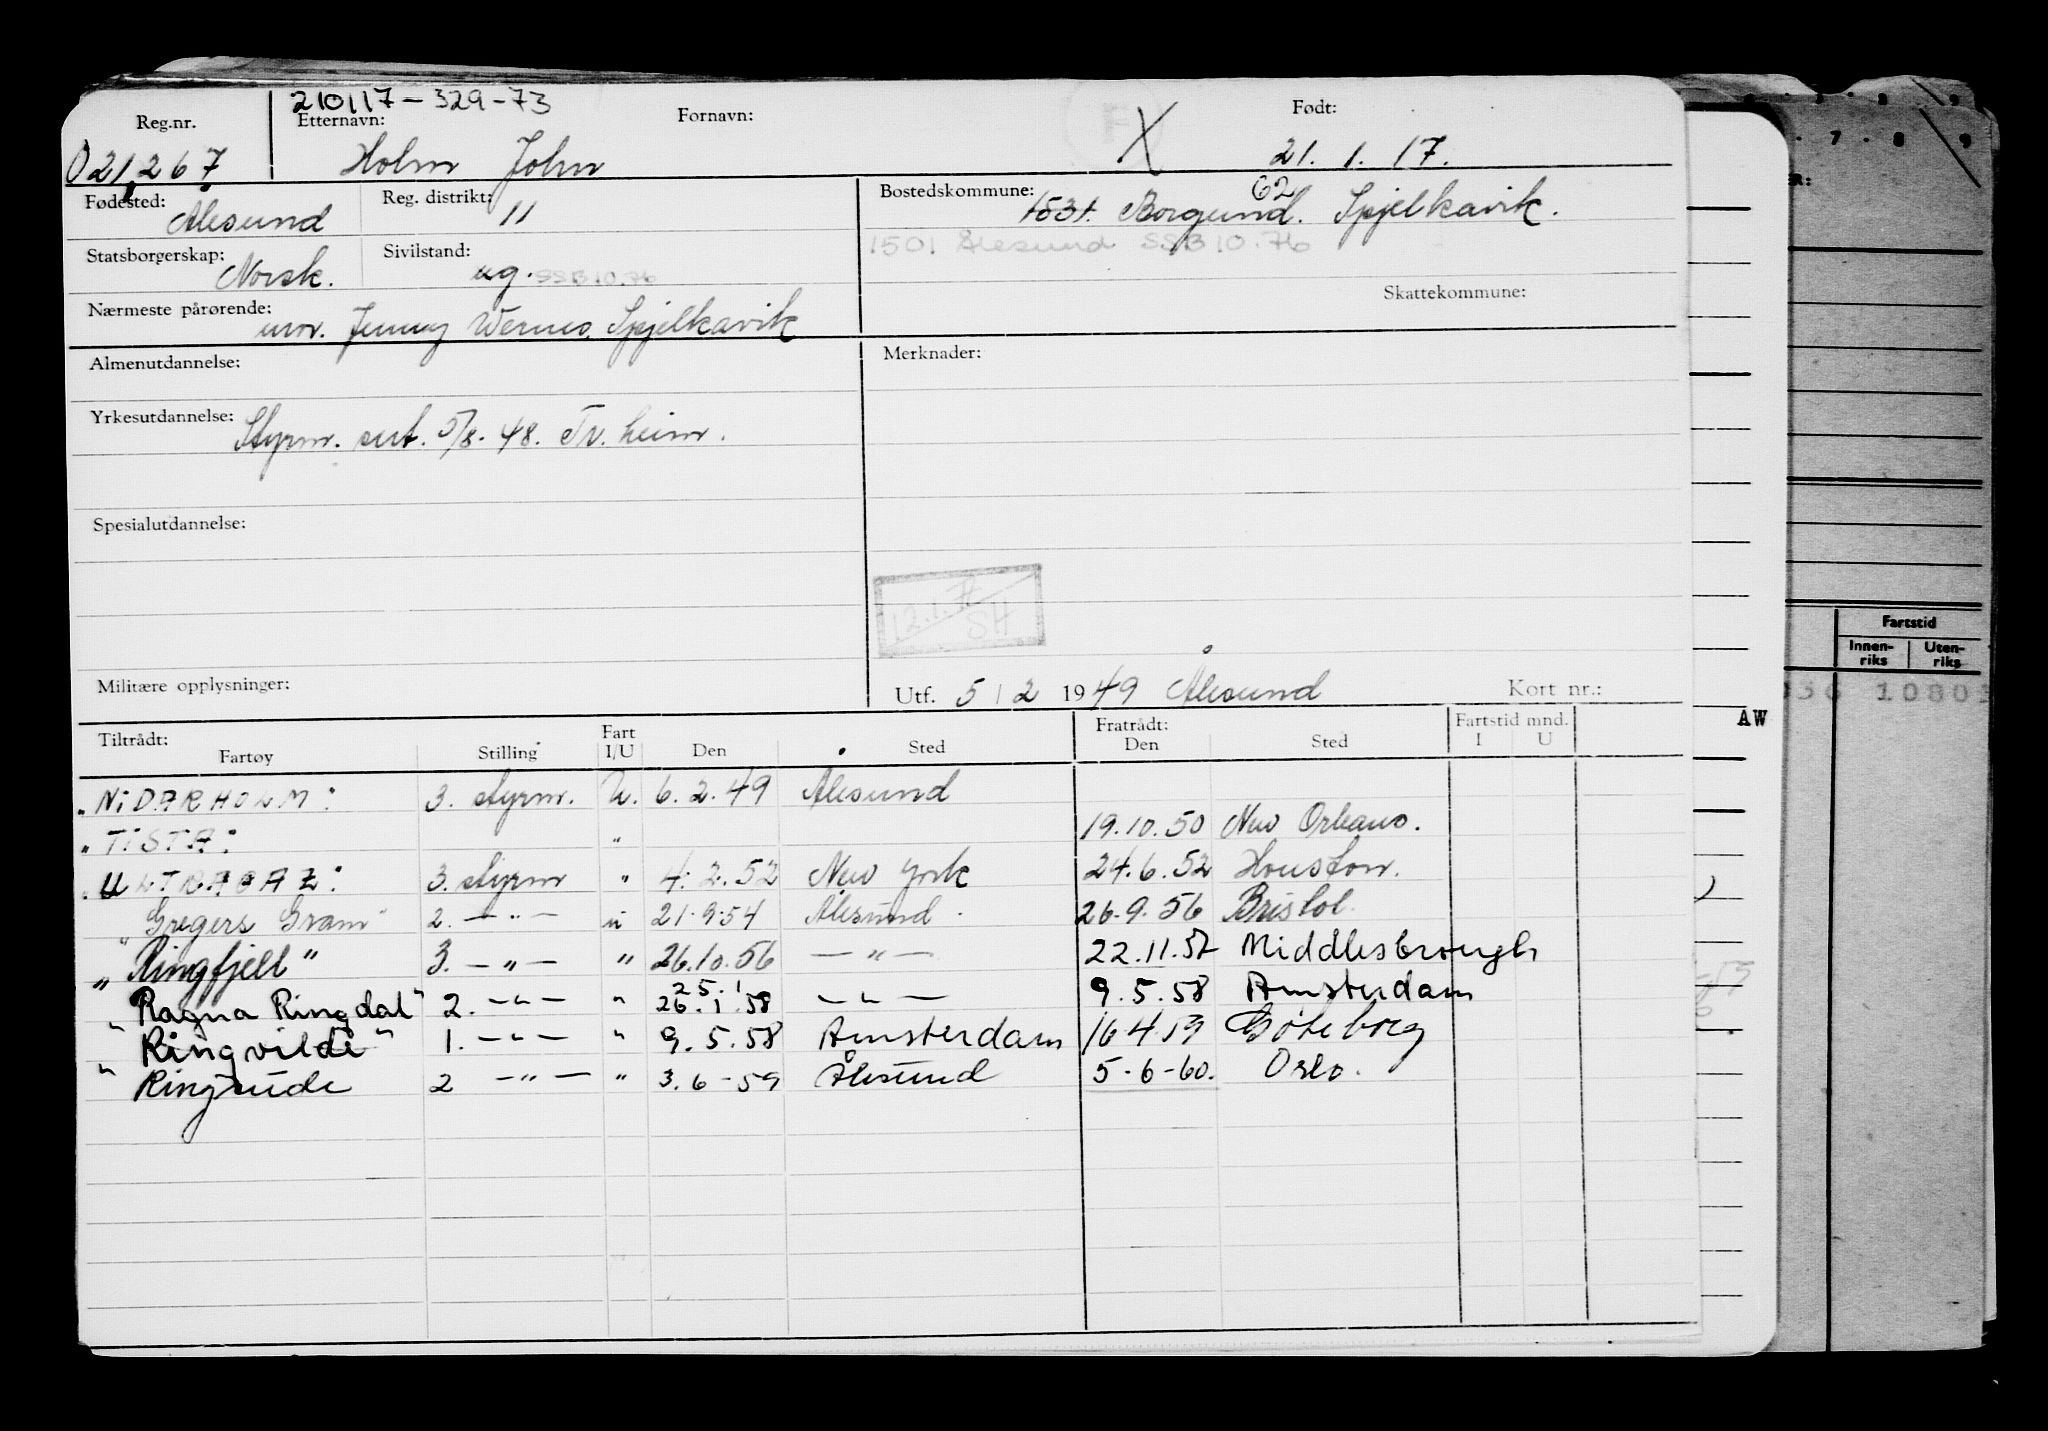 210117-329-73
Reg.nr. Etternavn: Fornavn: Født:
021267 Holm John X 21. 1. 17.
Fødested: Ålesund Reg. distrikt: 11 Bostedskommune: 1531. Borgund. 62 Spjelkavik.
1501 Ålesund SSB 10.76
Statsborgerskap: Norsk. Sivilstand: ug. SSB 10.76
Skattekommune:
Nærmeste pårørende: mor. Jenny Wernes, Spjelkavik
Almenutdannelse: Merknader:
Yrkesutdannelse: Styrm. sert. 5/8-48. Tr.heim.
Spesialutdannelse:
12.1.77
SH
Militære opplysninger: Utf. 5/2 1949 Ålesund Kort nr.:
Tiltrådt: Fratrådt: Fartstid mnd.
Fartøy Stilling Fart I/U Den Sted Den Sted I U
"NIDARHOLM" 3. styrm. U. 6.2.49 Ålesund
"TISTA" " 19.10.50 New Orleans.
"ULTRAGAZ" 3. styrm " 4.2.52 New York 24.6.52 Houston.
"Gregers Gram" 2. -"- u 21.9.54 Ålesund. 26.9.56 Bristol.
"Ringfjell" 3. -"- " 26.10.56 -"- 22.11.57 Middlesbrough
25.1
"Ragna Ringdal" 2. -"- " 26.1.58 -"- 9.5.58 Amsterdam
"Ringvilde" 1. -"- " 9.5.58 Amsterdam 16 4.59 Göteborg
"Ringulde 2 -"- " 3.6-59 Ålesund 5-6-60. Oslo.
7 8 9
Fartstid
Innen-riks Uten-riks
036 10803
AW